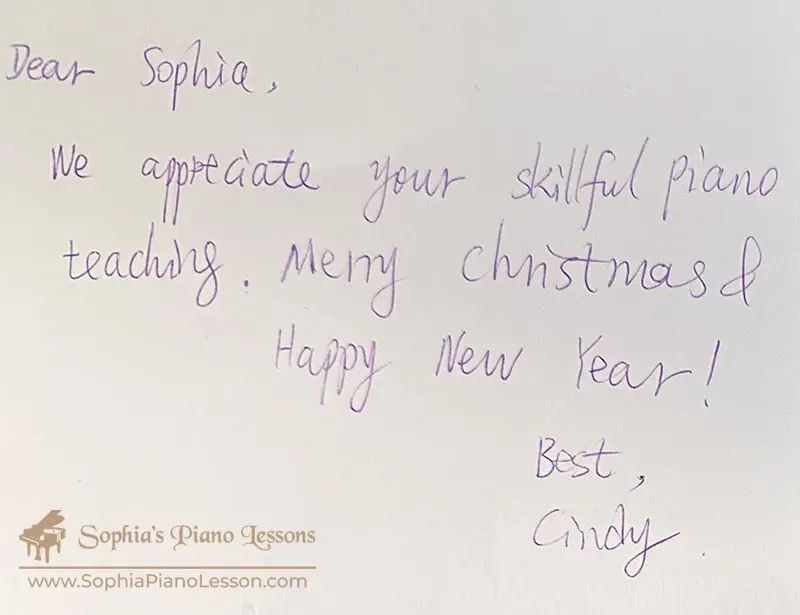 Dear Sophia,
We appreciate your skillful piano
teaching. Merry Christmas &
Happy New Year!
Best,
Cindy.
Sophia's Piano Lessons
www.SophiaPianoLesson.com